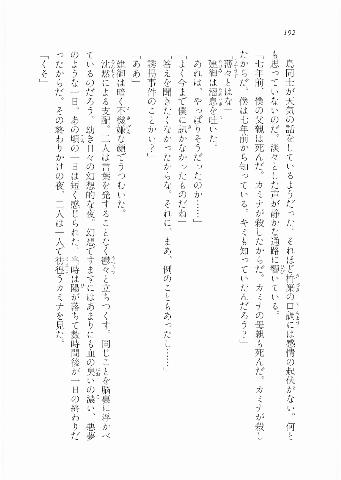 192
鳥同士が天気の話をしているようだった。それほど柞葉の口調には感情の起伏がない。何と
も思っていないのだ。淡々とした声が静かな通路に響いている。
「七年前、僕の父親は死んだ。カミナが殺したからだ。カミナの母親も死んだ。カミナが殺し
たからだ。僕は七年前から知っている。キミも知っていたんだろう？」
「薄々とはな」
建御は溜息を吐いた。
「あれは、やっぱりそうだったのか……」
「よく今まで僕に訊かなかったものだね」
「答えを聞きたくなかったからな。それに、まあ、例のこともあったし……」
「誘拐事件のことかい？」
「ああ」
建御は暗く不機嫌な顔でうつむいた。
沈黙による支配。二人は言葉を発することなく濃々と立ちつくす。同じことを脳裏に浮かべ
ているのだろう。幼き日々の幻想的な夜。幻想ですますにはあまりにも血の臭いの濃い、悪夢
のような一日。あの頃の一日は短く感じられた。当時は陽が落ちて数時間後が一日の終わりだ
ったからだ。その終わりかけの夜、二人は一人で彷徨うカミナを見た。
「くそ」